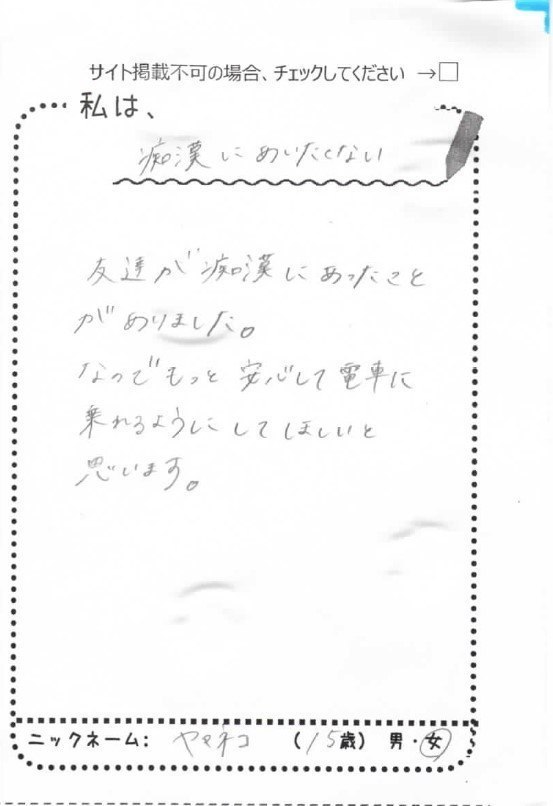 サイト掲載不可の場合、チェックしてください →□
私は、
痴漢にあいたくない
友達が痴漢にあったこと
がありました。
なのでもっと安心して電車に
乗れるようにしてほしいと
思います。
ニックネーム: ヤマネコ (15歳) 男・女